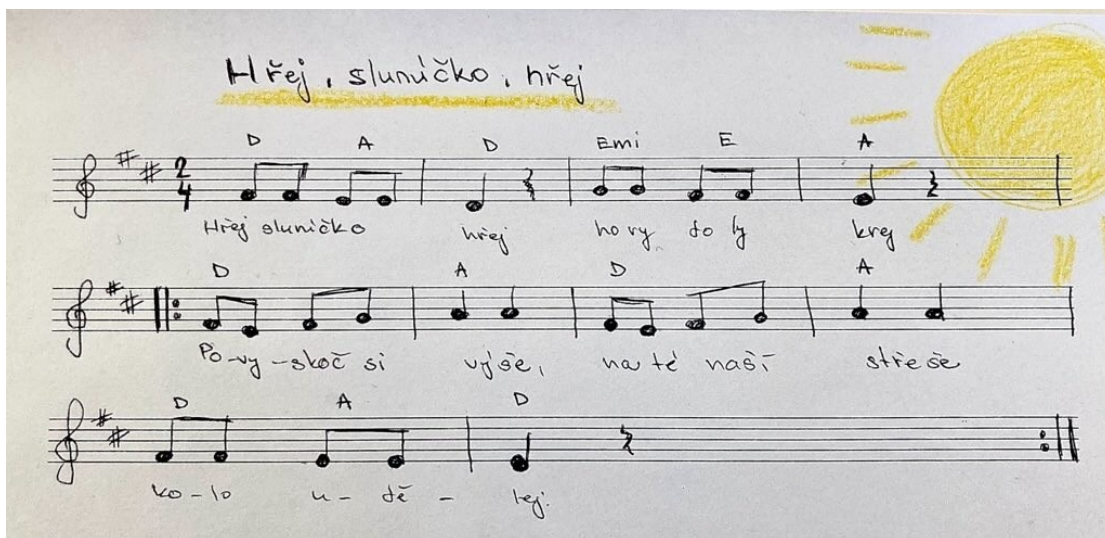 Hřej, sluníčko, hřej
D A D Emi E A
2
4
Hřej sluničko hřej ho ry do ly krej
D A D A
Po-vy-skoč si výše, na té naší střeše
D A D
ko-lo u-dě-lej.